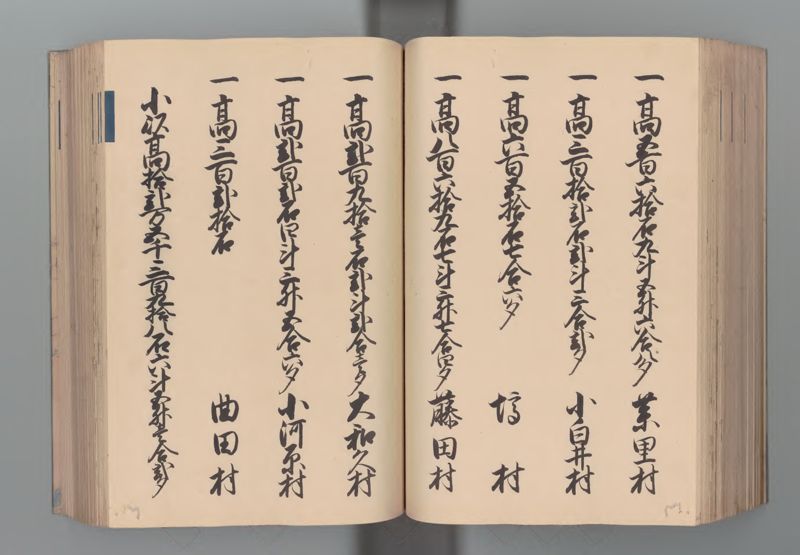 一高五百六拾石九斗五升六合八夕 業里村
一高三百拾弐石弐斗三合弐夕 小臼井村
一高六百五拾石七合六夕 塙村
一高八百六拾九石七斗三升七合四夕 藤田村
一高弐百九拾壱石弐斗弐合壱夕 大和久村
一高弐百弐石四斗三升五合六夕 小河原村
一高三百弐拾石 曲田村
小以高拾弐万五千三百九拾八石六斗五升壱合弐夕